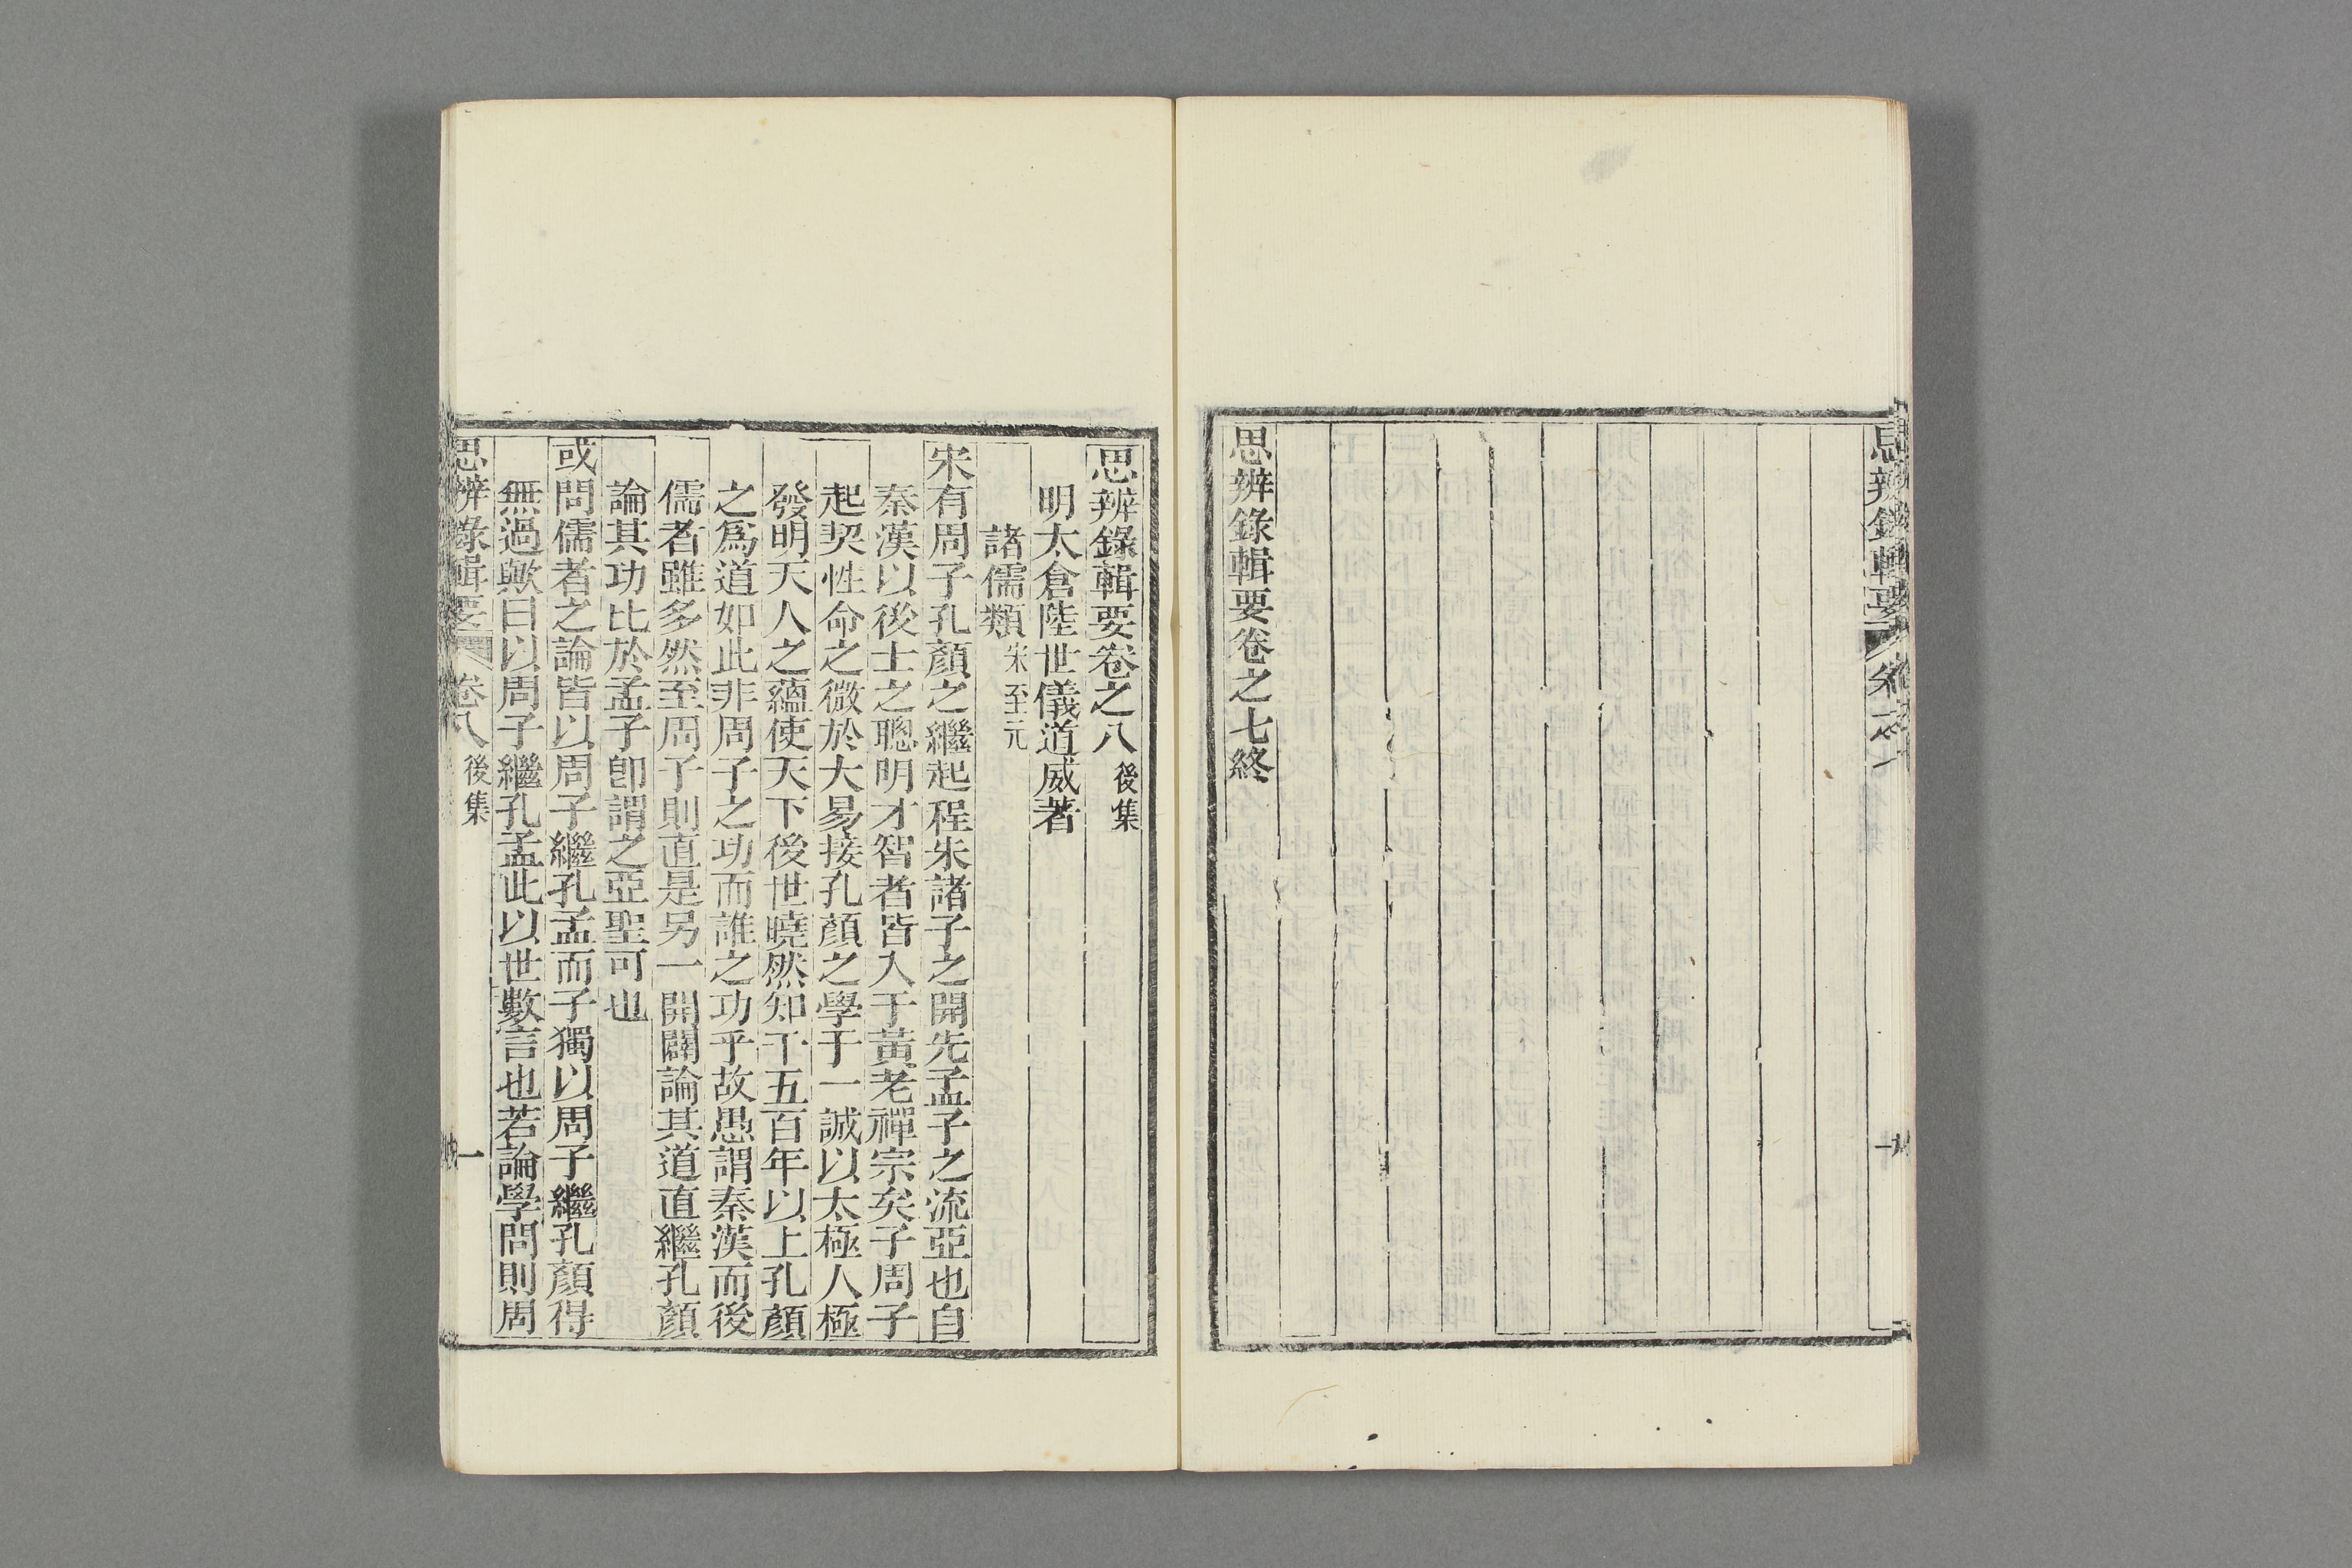 思辨錄輯要
思辨錄輯要卷之七終
思辨錄輯要卷之八 後集
明太倉陸世儀道威著
諸儒類 宋至元
宋有周子孔顏之繼起程朱諸子之開先孟子之流亞也自
秦漢以後士之聰明才智者皆入于黃老禪宗矣子周子
起契性命之微於大易接孔顏之學于一誠以太極人極
發明天人之蘊使天下後世曉然知千五百年以上孔顏
之爲道如此非周子之功而誰之功乎故愚謂秦漢而後
儒者雖多然至周子則直是另一開闢論其道直繼孔顏
論其功比於孟子卽謂之亞聖可也
或問儒者之論皆以周子繼孔孟而子獨以周子繼孔顏得
無過歟曰以周子繼孔孟此以世數言也若論學問則周
思辨錄輯要 卷八 後集 一